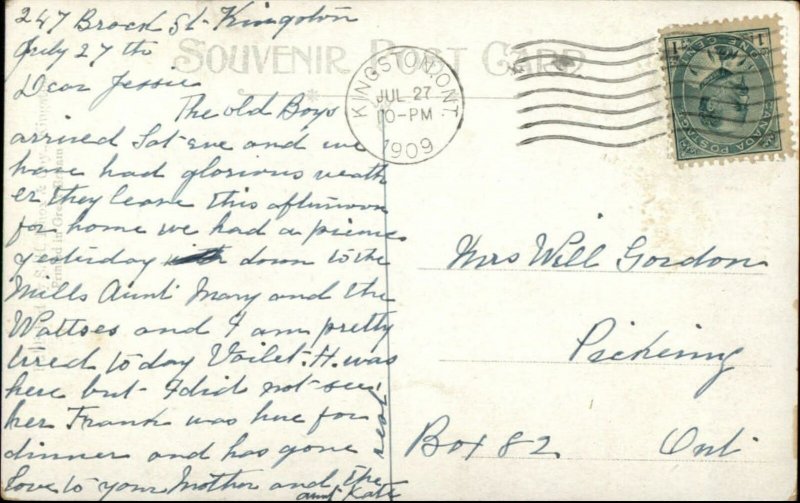 247 Brock St- Kingston
July 27 th
Dear Jessie
The old Boys
arrived Sat eve and we
have had glorious weath
er they leave this afternoon
for home we had a picnic
yesterday down to the
Mills Aunt Mary and the
Wattses and I am pretty
tired to day Voilet. H. was
here but I did not see
her Frank was here for
dinner and has gone
love to your Mother and the rest
aunt Kate
SOUVENIR POST CARD
KINGSTON, ONT.
JUL 27
10-PM
1909
1 1
CANADA POSTAGE
Mrs Will Gordon
Pickering
Box 82 Ont